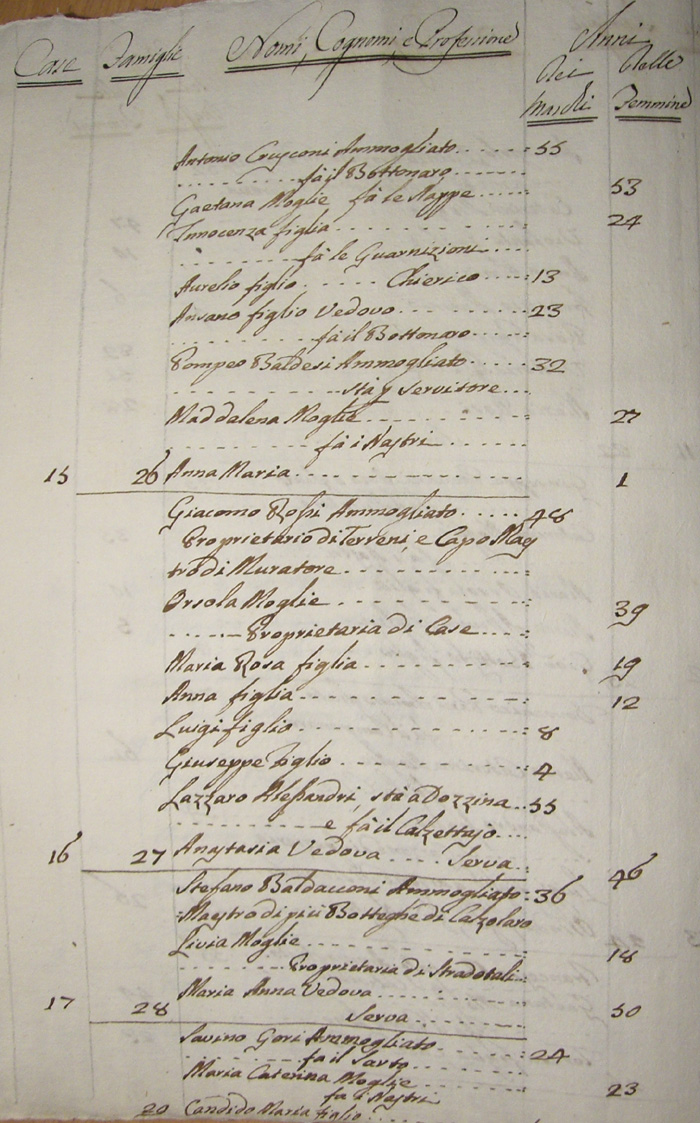 Case Famiglie Nomi, Cognomi, e Professione Anni
Dei Delle
Maschi Femmine
Antonio Ammogliato 55
fà il Bottonaro
Gaetana Moglie fà le Nappe 53
Innocenza figlia 24
fà le Guarnizioni
Aurelio figlio Chierico 13
Ansano figlio Vedovo 23
fà il Bottonaro
Pompeo Baldesi Ammogliato 32
stà p Servitore
Maddalena Moglie 27
fà i Nastri
15 26 Anna Maria 1
Giacomo Rossi Ammogliato 48
Proprietario di Terreni, e Capo Mas
tro di Muratore
Orsola Moglie 39
Proprietaria di Case
Maria Rosa figlia 19
Anna figlia 12
Luigi figlio 8
Giuseppe figlio 4
Lazzaro Alessandri, stà a Dozzina 55
e fà il Calzettajo
16 27 Anastasia Vedova Serva 46
Stefano Baldacconi Ammogliato 36
Maestro di più Botteghe di Calzolaro
Livia Moglie 18
Proprietaria di Stradotali
Maria Anna Vedova
17 28 Serva 50
Savino Gori Ammogliato 24
fa il Sarto
Maria Caterina Moglie 23
fa i Nastri
Candido Maria figlio